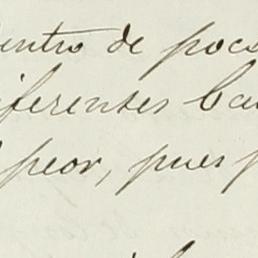 dentro de poco
diferentes ba
peor, pues p